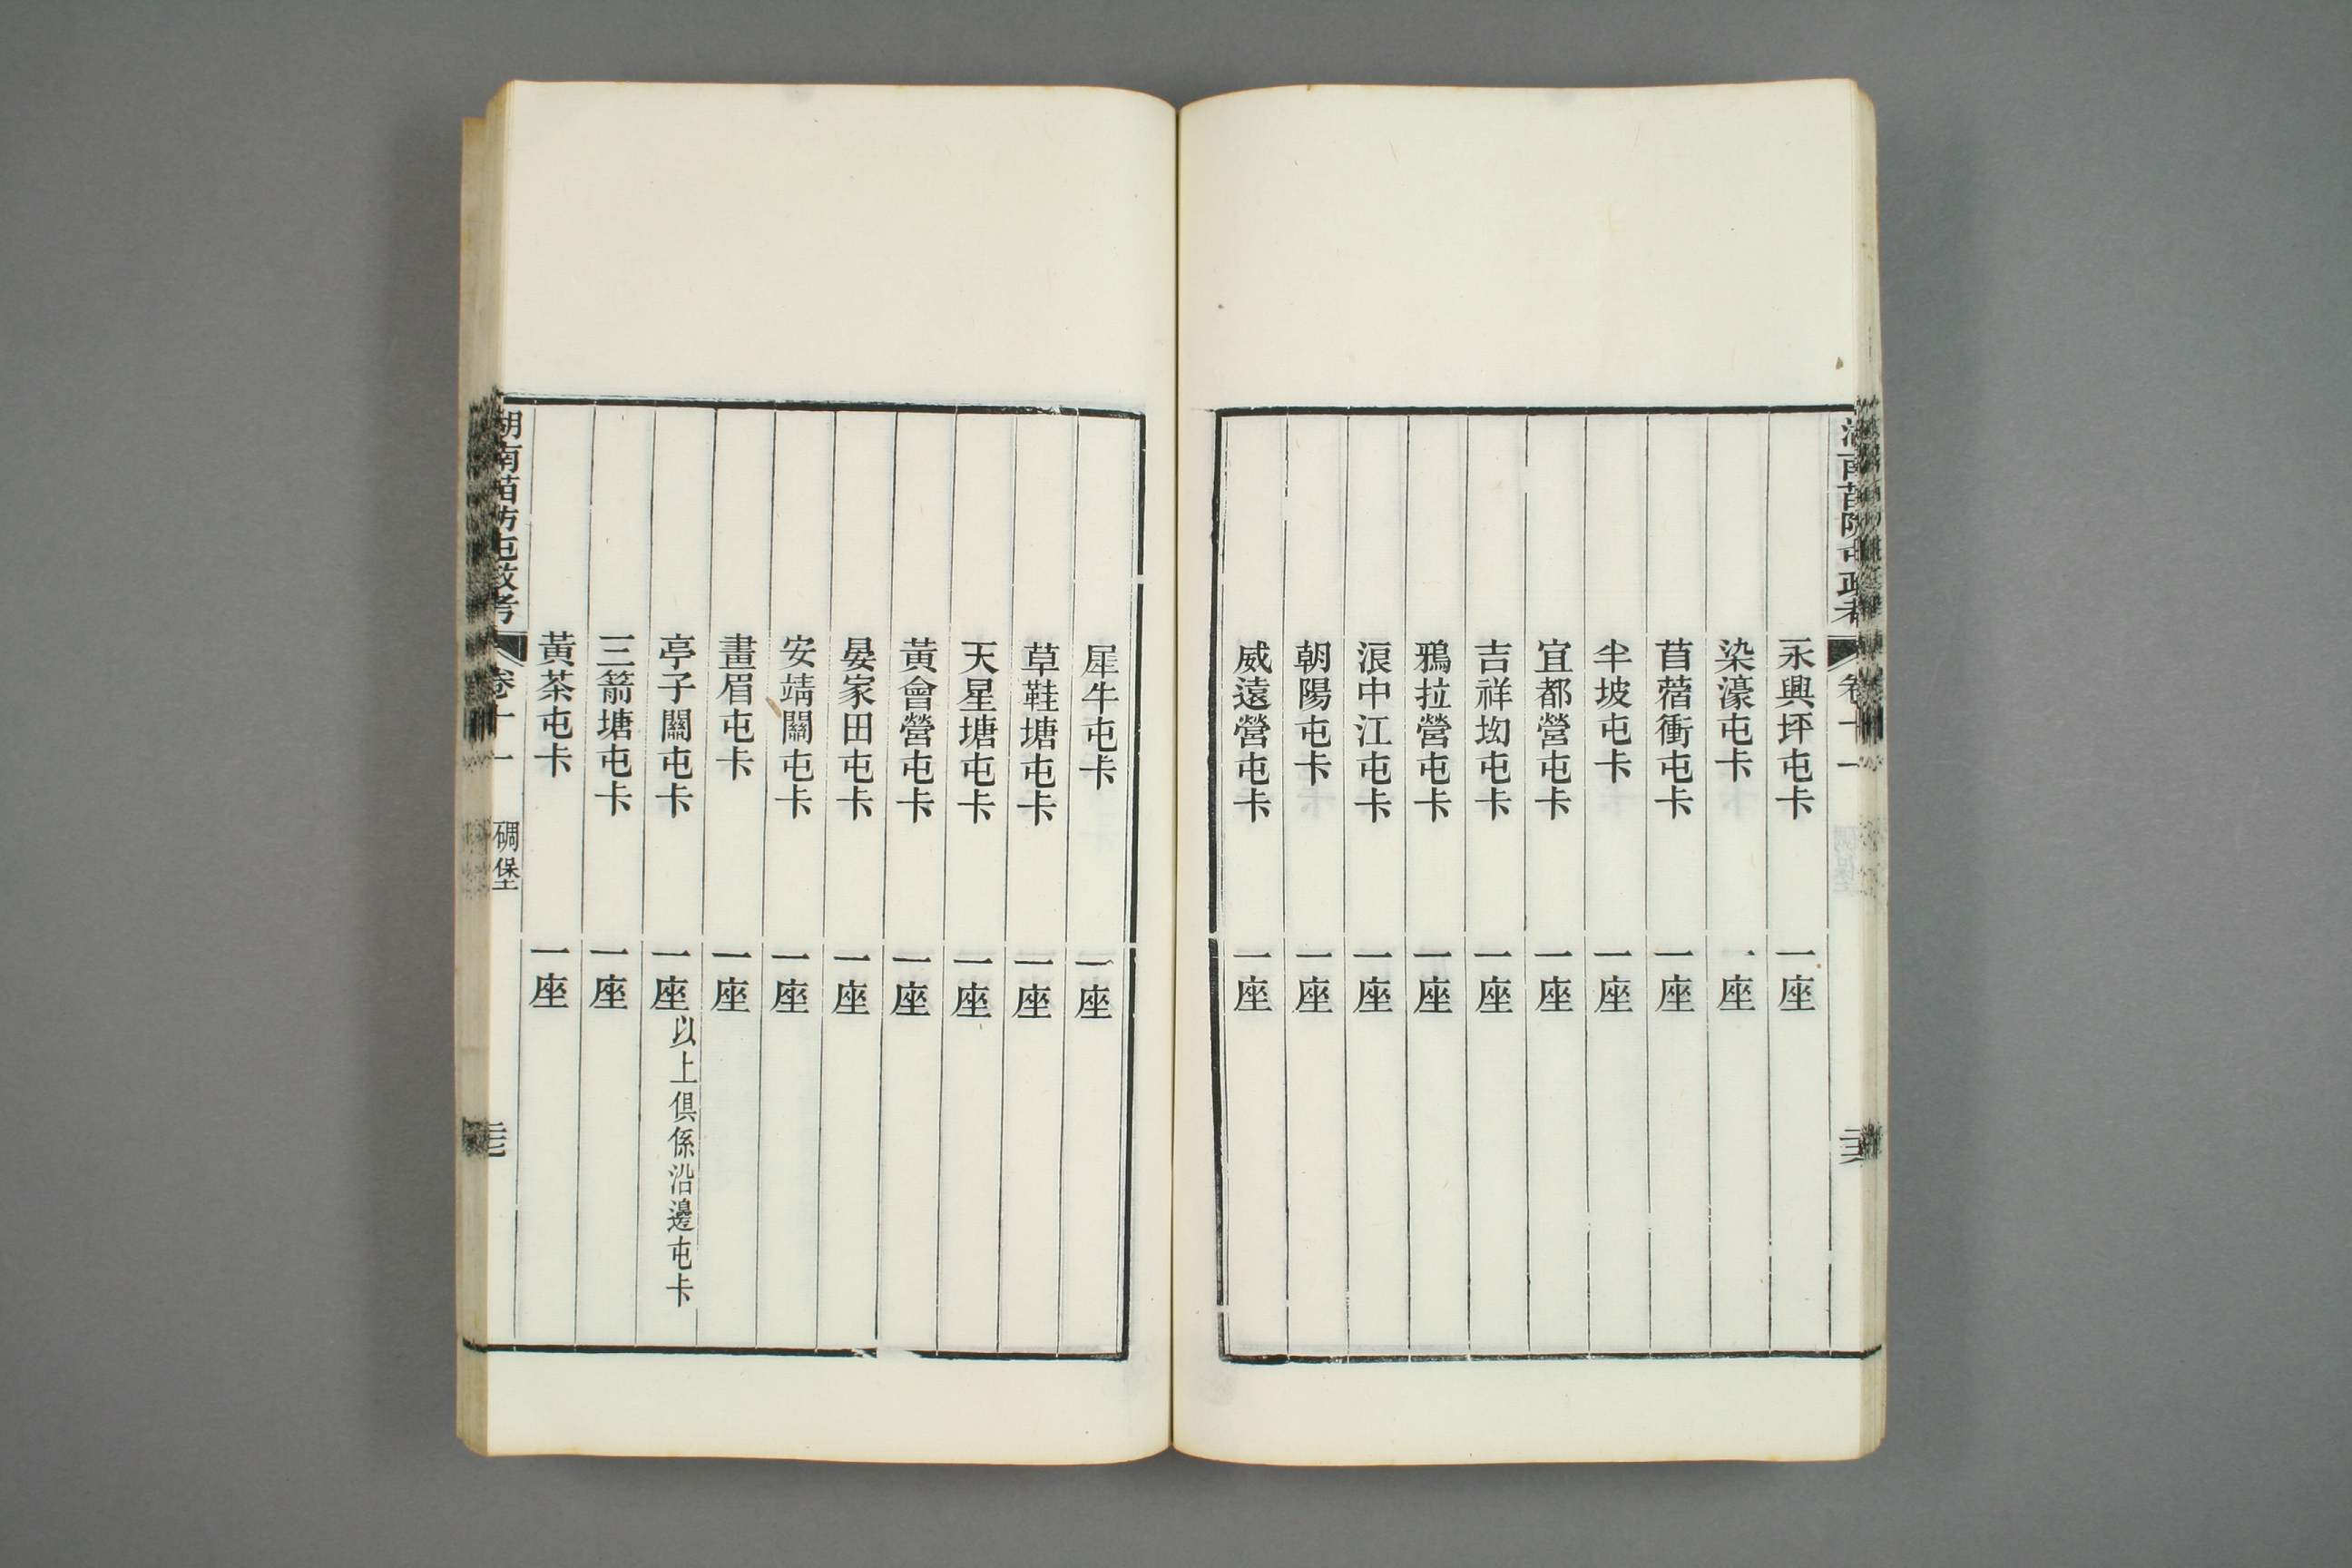 湖南苗防屯政考
卷十一
永興坪屯卡 一座
染濠屯卡 一座
苜蓿衝屯卡 一座
半坡屯卡 一座
宜都營屯卡 一座
吉祥坳屯卡 一座
鴉拉營屯卡 一座
浪中江屯卡 一座
朝陽屯卡 一座
威遠營屯卡 一座
犀牛屯卡 一座
草鞋塘屯卡 一座
天星塘屯卡 一座
黃會營屯卡 一座
晏家田屯卡 一座
安靖關屯卡 一座
畫眉屯卡 一座
亭子關屯卡 一座以上俱係沿邊屯卡
三箭塘屯卡 一座
黃茶屯卡 一座
湖南苗防屯政考
卷十一
碉堡